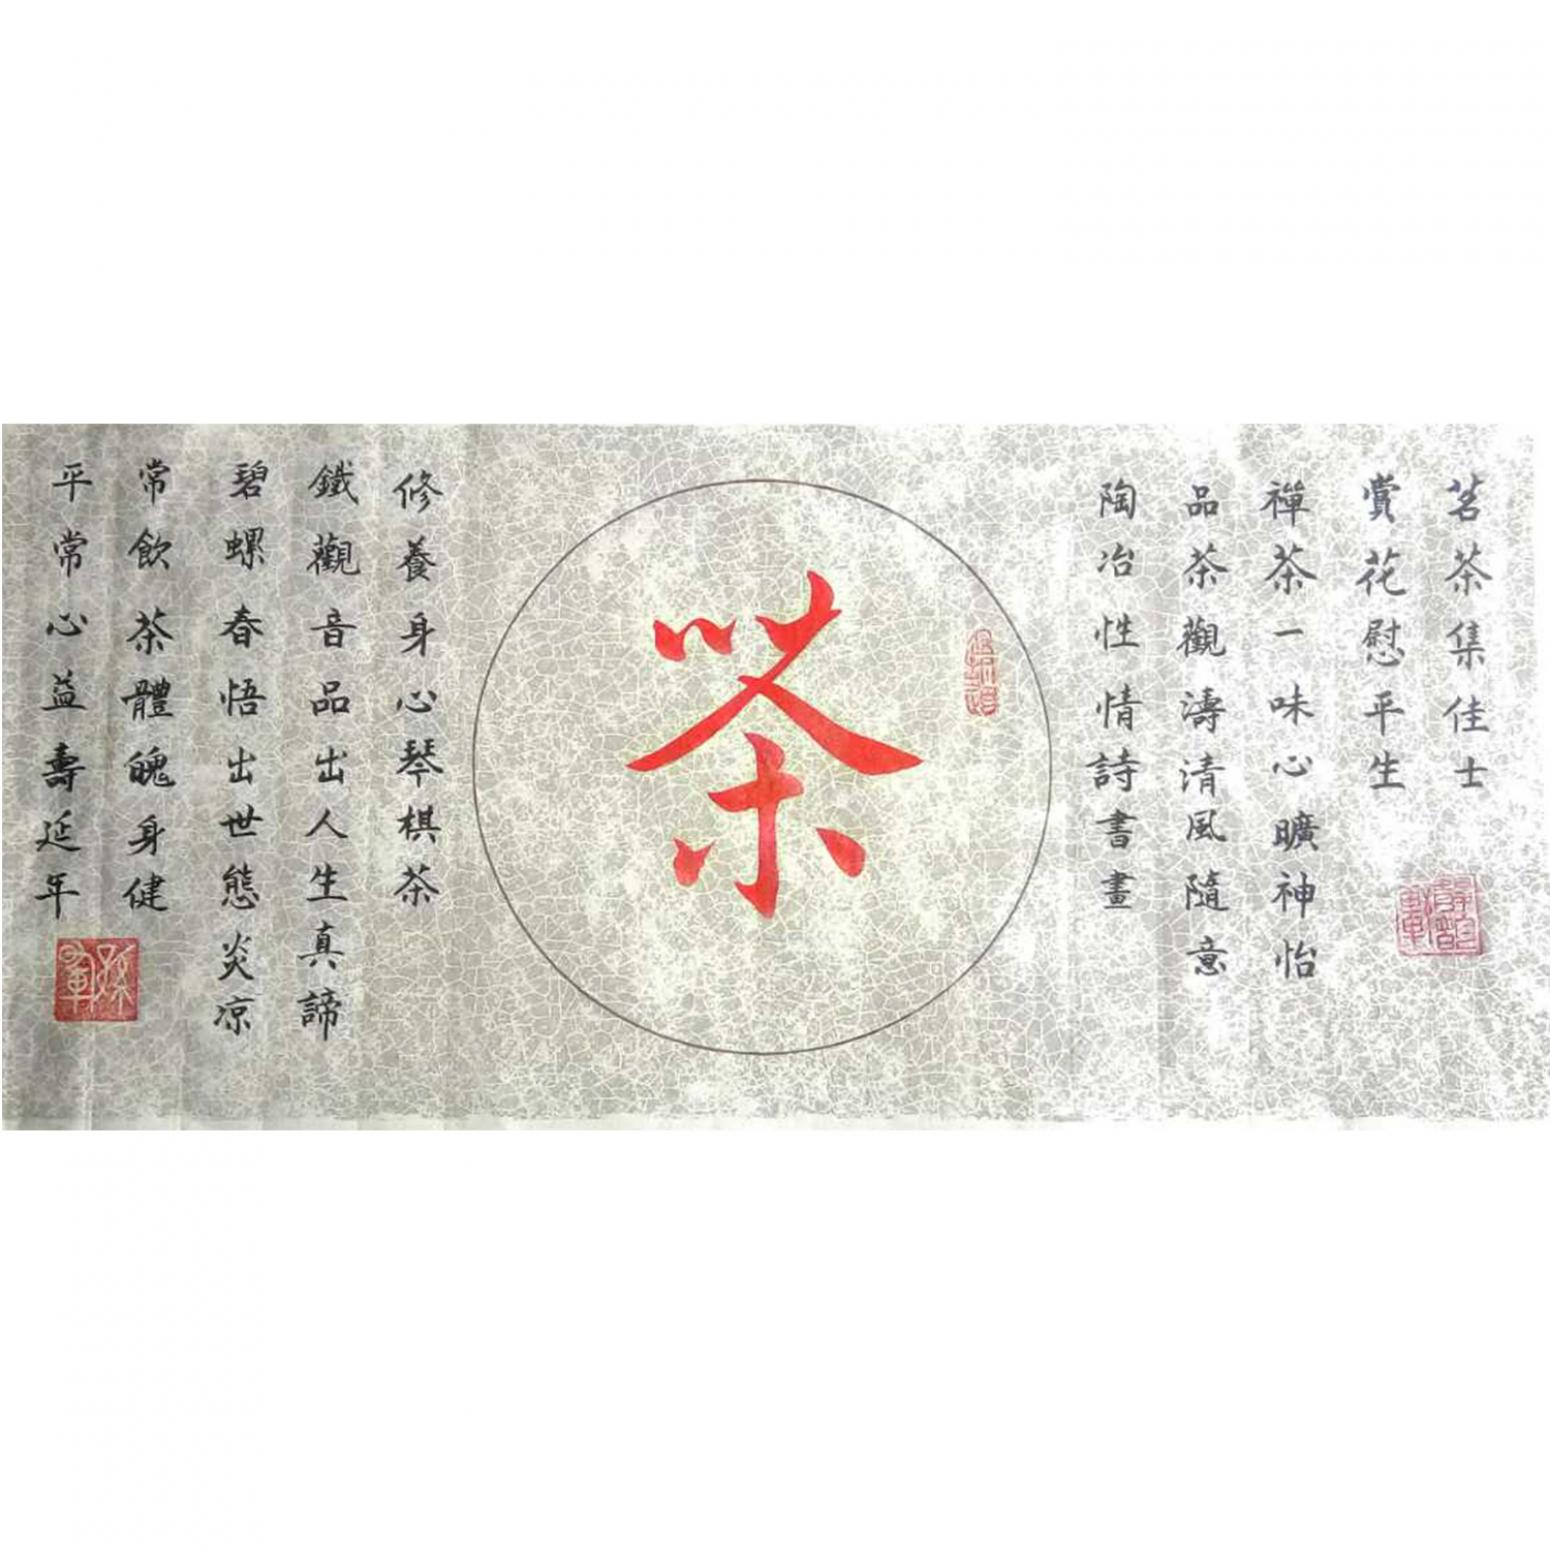 茗茶集佳士
賞花慰平生
禪茶一味心曠神怡
品茶觀濤清風隨意
陶冶性情詩書畫
茶
修養身心琴棋茶
鐵觀音品出人生真諦
碧螺春悟出世態炎凉
常飲茶體魄身健
平常心益壽延年